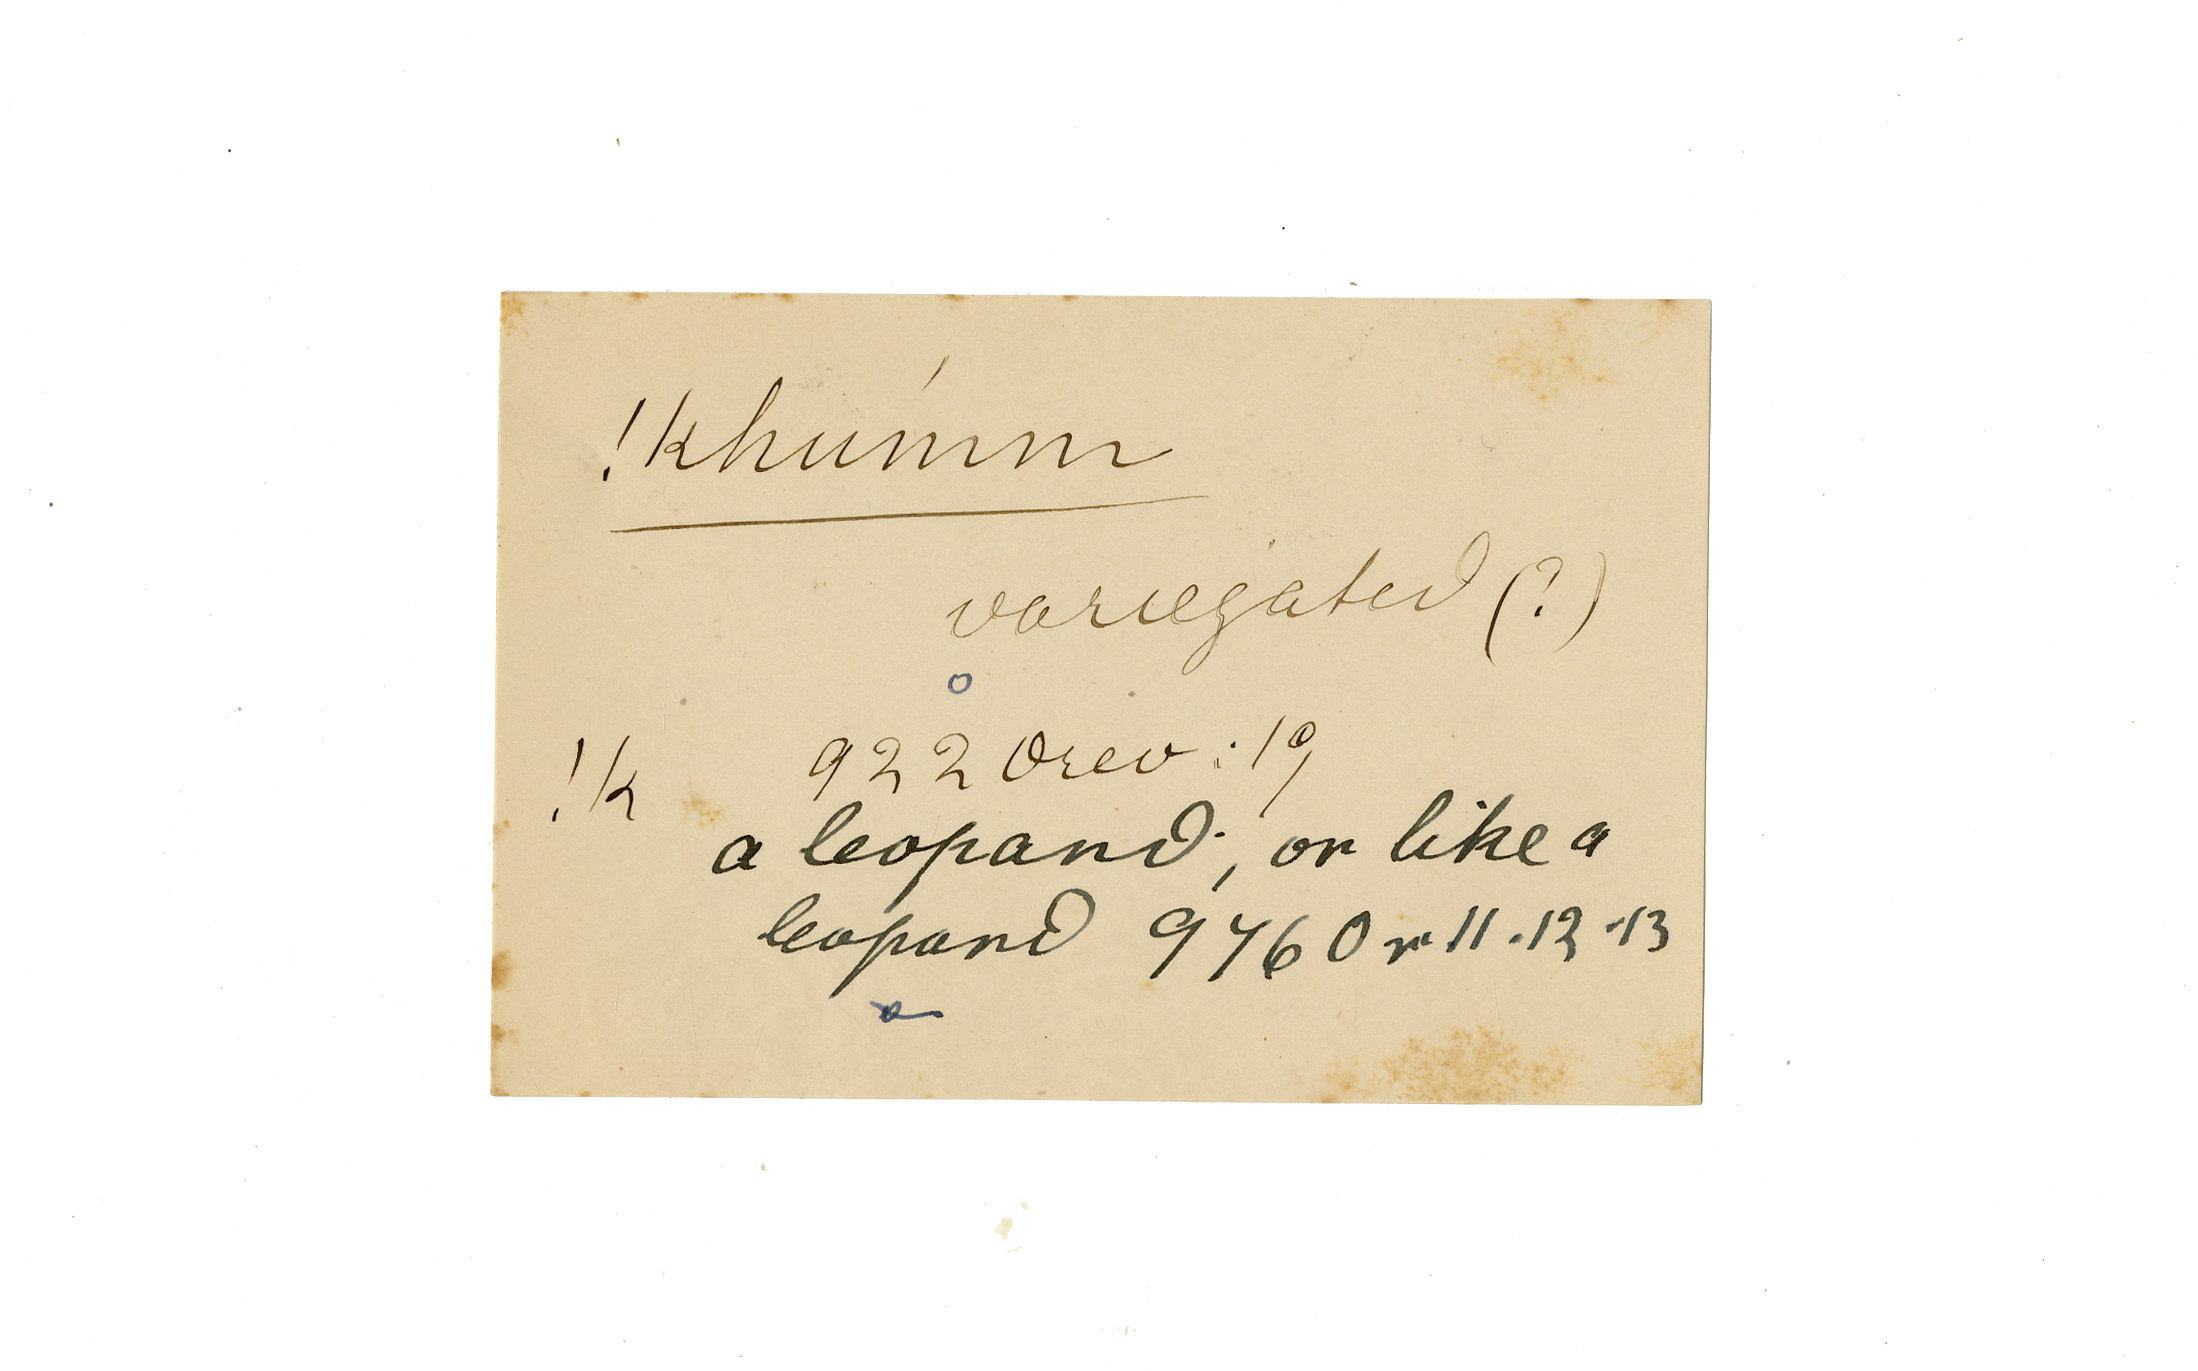 !khúmm
variegated (?)
!k 922 Orev : 19
a leopard, or like a
leopard 9760 r 11.12.13